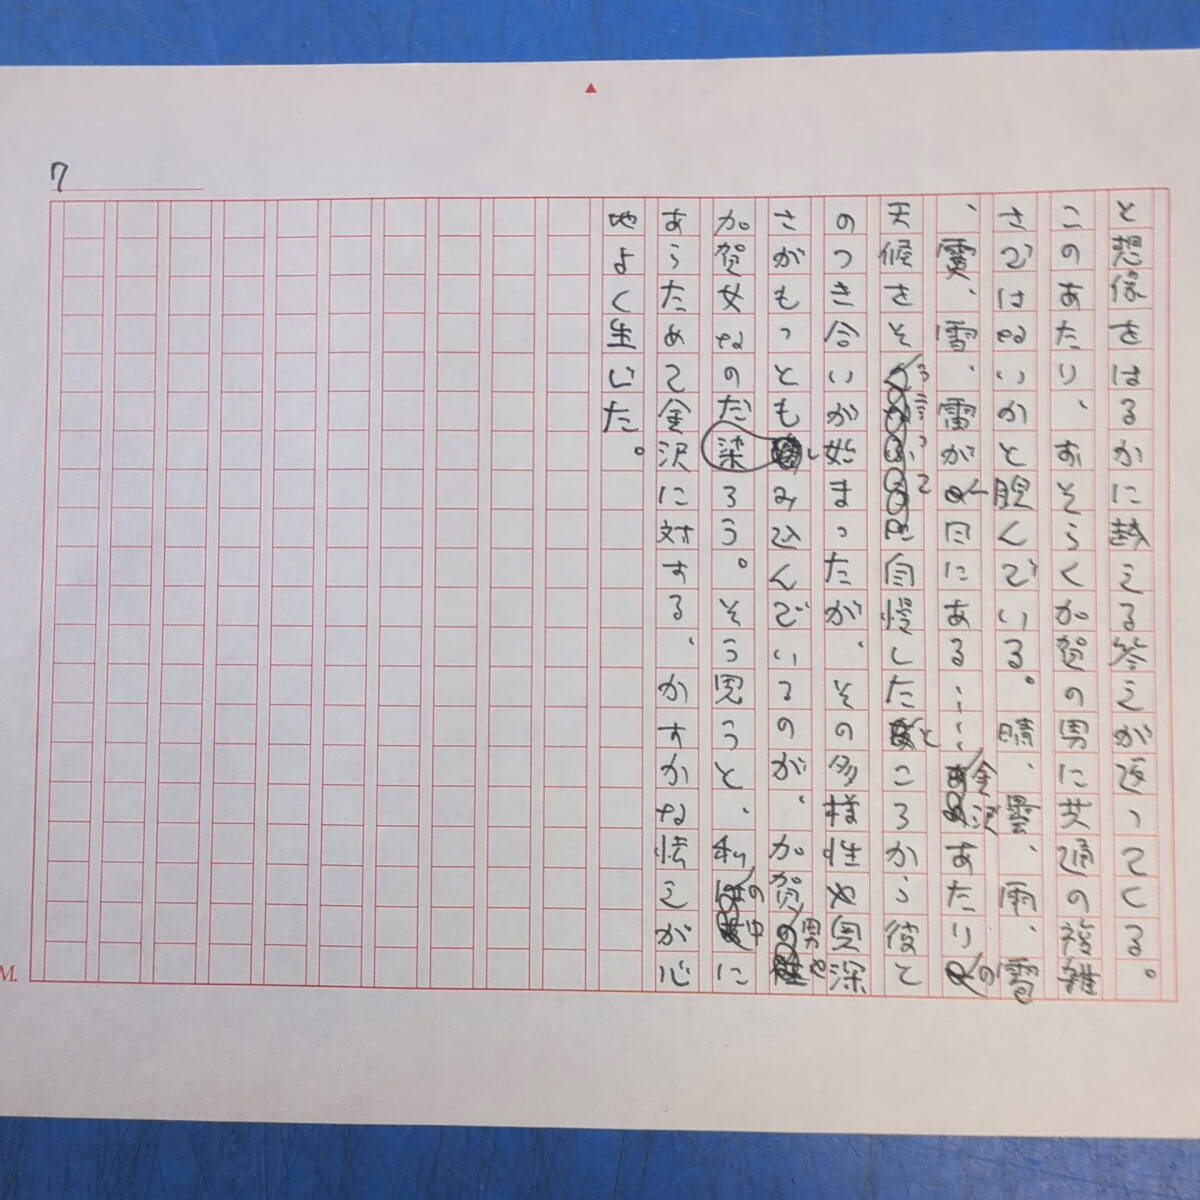 7
と想像をはるかに越える答えが返ってくる。
このあたり、おそらく加賀の男に共通の複雑
さではないかと睨んでいる。晴、曇、雨、雹
、霙、雪、雷が一日にある……金沢あたりの
天候をそう言って自慢したところから彼と
のつき合いが始まったが、その多様性や奥深
さがもっとも染しみ込んでいるのが、加賀男や
加賀女なのだろう。そう思うと、私の中に
あらためて金沢に対する、かすかな怯えが心
地よく生じた。
M.